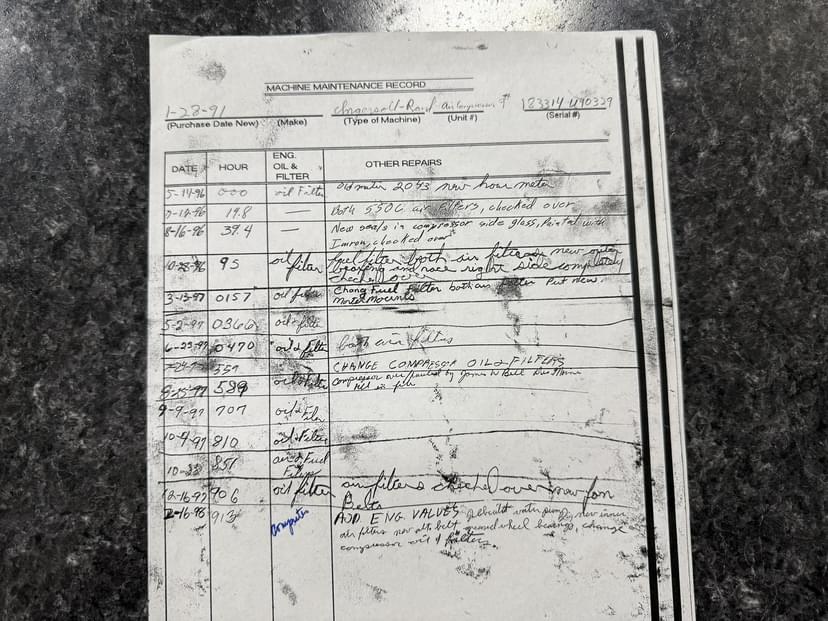 MACHINE MAINTENANCE RECORD
1-28-91 Ingersoll-Rand air compressor # 183314 U90329
(Purchase Date New) (Make) (Type of Machine) (Unit #) (Serial #)
DATE HOUR ENG. OIL & FILTER OTHER REPAIRS
5-14-96 000 oil Filter old meter 2043 new hour meter
19.8 — Both air filters, checked over
8-16-96 39.4 — New seals in compressor side glass, Painted with
Imron, checked over
10-23-96 95 oil filter fuel filter both air filters new outer
bearing and race right side completely
checked over
3-13-97 0157 oil filter Chang Fuel Filter both air filter Put New
Motor Mounts
5-2-97 0366 oil & filter
6-23-97 0470 oil & filter both air filters
357 CHANGE COMPRESSOR OIL & FILTERS
589 oil & filter compressor by James W Bell
9-9-97 707 oil & filter
10-4-97 810 oil & Filter
10-23 851 air & Fuel Filters
12-16-97 906 oil filter air filters checked over new fan
Belts
2-16-98 913 Computer ADD ENG. VALVES Rebuilt water pump, new inner
air filters new alt. belt wheel bearings, change
compressor oil & filters.